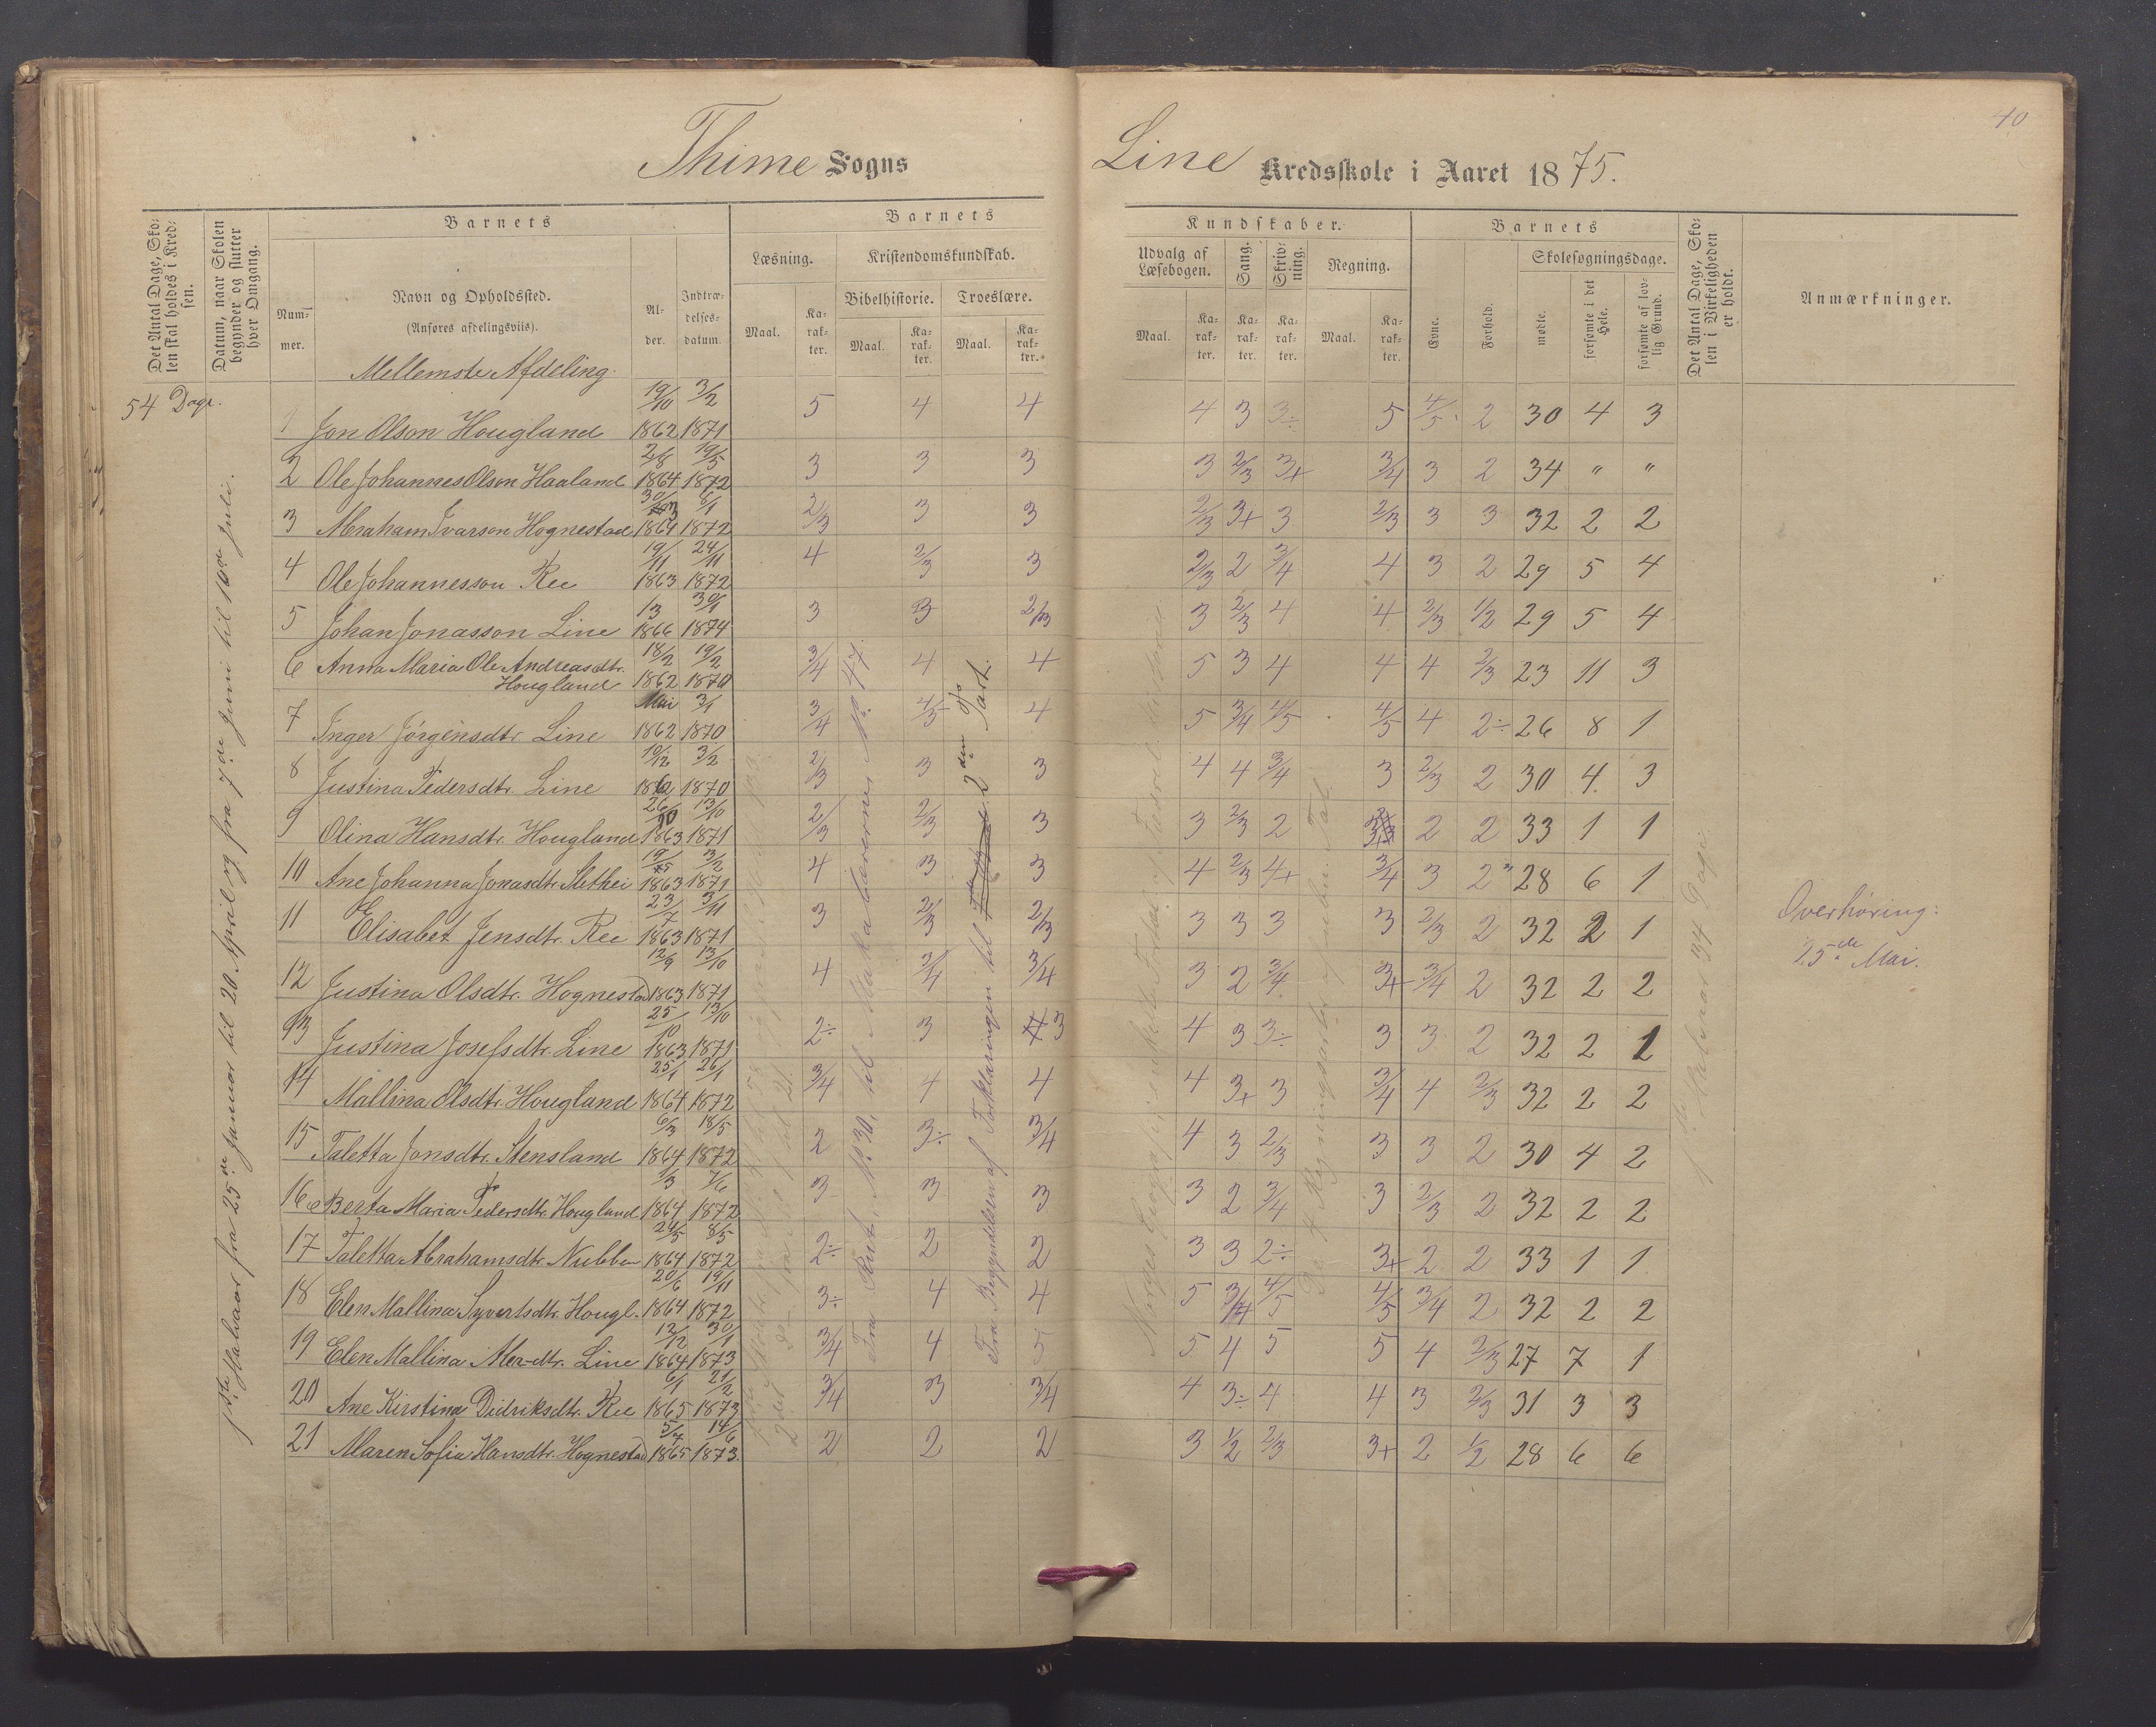 40
Thime Sogns
Line Kredsskole i Aaret 1875.
Det Antal Dage, Skolen skal holdes i Kredsen.
Datum, naar Skolen begynder og slutter hver Omgang.
Barnets
Nummer.
Navn og Opholdssted.
(Anføres afdelingsviis).
Alder.
Indtrædelsesdatum.
Barnets
Læsning.
Kristendomskundskab.
Bibelhistorie.
Troeslære.
Maal.
Karakter.
Maal.
Karakter.
Maal.
Karakter.
Kundskaber.
Udvalg af Læsebogen.
Sang.
Skrivning.
Regning.
Maal.
Karakter.
Karakter.
Karakter.
Maal.
Karakter.
Barnets
Evne.
Forhold.
Skolesøgningsdage.
mødte.
forsømte i det Hele.
forsømte af lovlig Grund.
Det Antal Dage, Skolen i Virkeligheden er holdt.
Anmærkninger.
Mellemste Afdeling.
54 Dage.
1ste Halvaar fra 25de Januar til 20 April og fra 7de Juni til 16de Juli.
1 Jon Olson Hougland 19/10 1862 3/2 1871 5 4 4 4 3 3÷ 5 4/5 2 30 4 3
2 Ole Johannes Olson Haaland 2/8 1864 19/5 1872 3 3 3 3 2/3 3+ 3/4 3 2 34 " "
3 Abraham Ivarson Hognestad 30/3 1864 6/1 1872 2/3 3 3 2/3 3+ 3 2/3 3 3 32 2 2
4 Ole Johannesson Ree 19/11 1863 24/11 1872 4 2/3 3 2/3 2 3/4 4 3 2 29 5 4
5 Johan Jonasson Line 1/3 1866 30/1 1874 3 3 2/3 3 2/3 4 4 2/3 1/2 29 5 4
6 Anna Maria Ole Andreasdtr. Hougland 18/2 1862 19/2 1870 3/4 4 4 5 3 4 4 4 2/3 23 11 3
7 Inger Jørgensdtr. Line Mai 1862 3/1 1870 3/4 4/5 4 5 3/4 4/5 4/5 4 2÷ 26 8 1
8 Justina Pedersdtr. Line 19/12 1862 3/2 1870 2/3 3 3 4 4 3/4 3 2/3 2 30 4 3
9 Olina Hansdtr. Hougland 26/10 1863 13/10 1871 2/3 2/3 3 3 2/3 2 2 2 33 1 1
10 Ane Johanna Jonasdtr. Slethei 19/5 1863 3/2 1871 4 3 3 4 2/3 4+ 3/4 3 2 28 6 1
11 Elisabet Jensdtr. Ree 23/7 1863 3/11 1871 3 2/3 2/3 3 3 3 3 2/3 2 32 2 1
12 Justina Olsdtr. Hognestad 12/9 1863 13/10 1871 4 3/4 3/4 3 2 3/4 3+ 3/4 2 32 2 2
13 Justina Josefsdtr. Line 25/10 1863 13/10 1871 2÷ 3 3 4 3 3÷ 3 3 2 32 2 1
14 Mallina Olsdtr. Hougland 25/1 1864 26/1 1872 3/4 4 4 4 3+ 3 3/4 4 2/3 32 2 2
15 Taletta Jonsdtr. Stensland 6/3 1864 18/5 1872 2 3÷ 3/4 4 3 2/3 3 3 2 30 4 2
16 Berta Maria Pedersdtr. Hougland 1/3 1864 7/6 1872 3 3 3 3 2 3/4 3 2/3 2 32 2 2
17 Taletta Abrahamsdtr. Nubben 24/5 1864 8/5 1872 2÷ 2 2 3 3 2÷ 3+ 2 2 33 1 1
18 Elen Mallina Syvertsdtr. Hougl. 20/6 1864 19/11 1872 3÷ 4 4 5 3/4 4/5 4/5 3/4 2 32 2 2
19 Elen Mallina Line 12/12 1864 30/1 1873 3/4 4 5 5 4 5 5 4 2/3 27 7 1
20 Ane Kirstina Didriksdtr. Ree 6/1 1865 21/2 1873 3/4 3 3/4 4 3÷ 4 4 3 2/3 31 3 3
21 Maren Sofia Hansdtr. Hognestad 5/7 1865 14/6 1873. 2 2 2 3 1/2 2/3 3+ 2 1/2 28 6 6
Fra Rut, No 30, til Makabæerne No 47
Fra Begyndelsen af Forklaringen til 2den Part.
De 4 Regningsarter i
1ste Halvaar 34 Dage
Overhøring:
25de Mai.